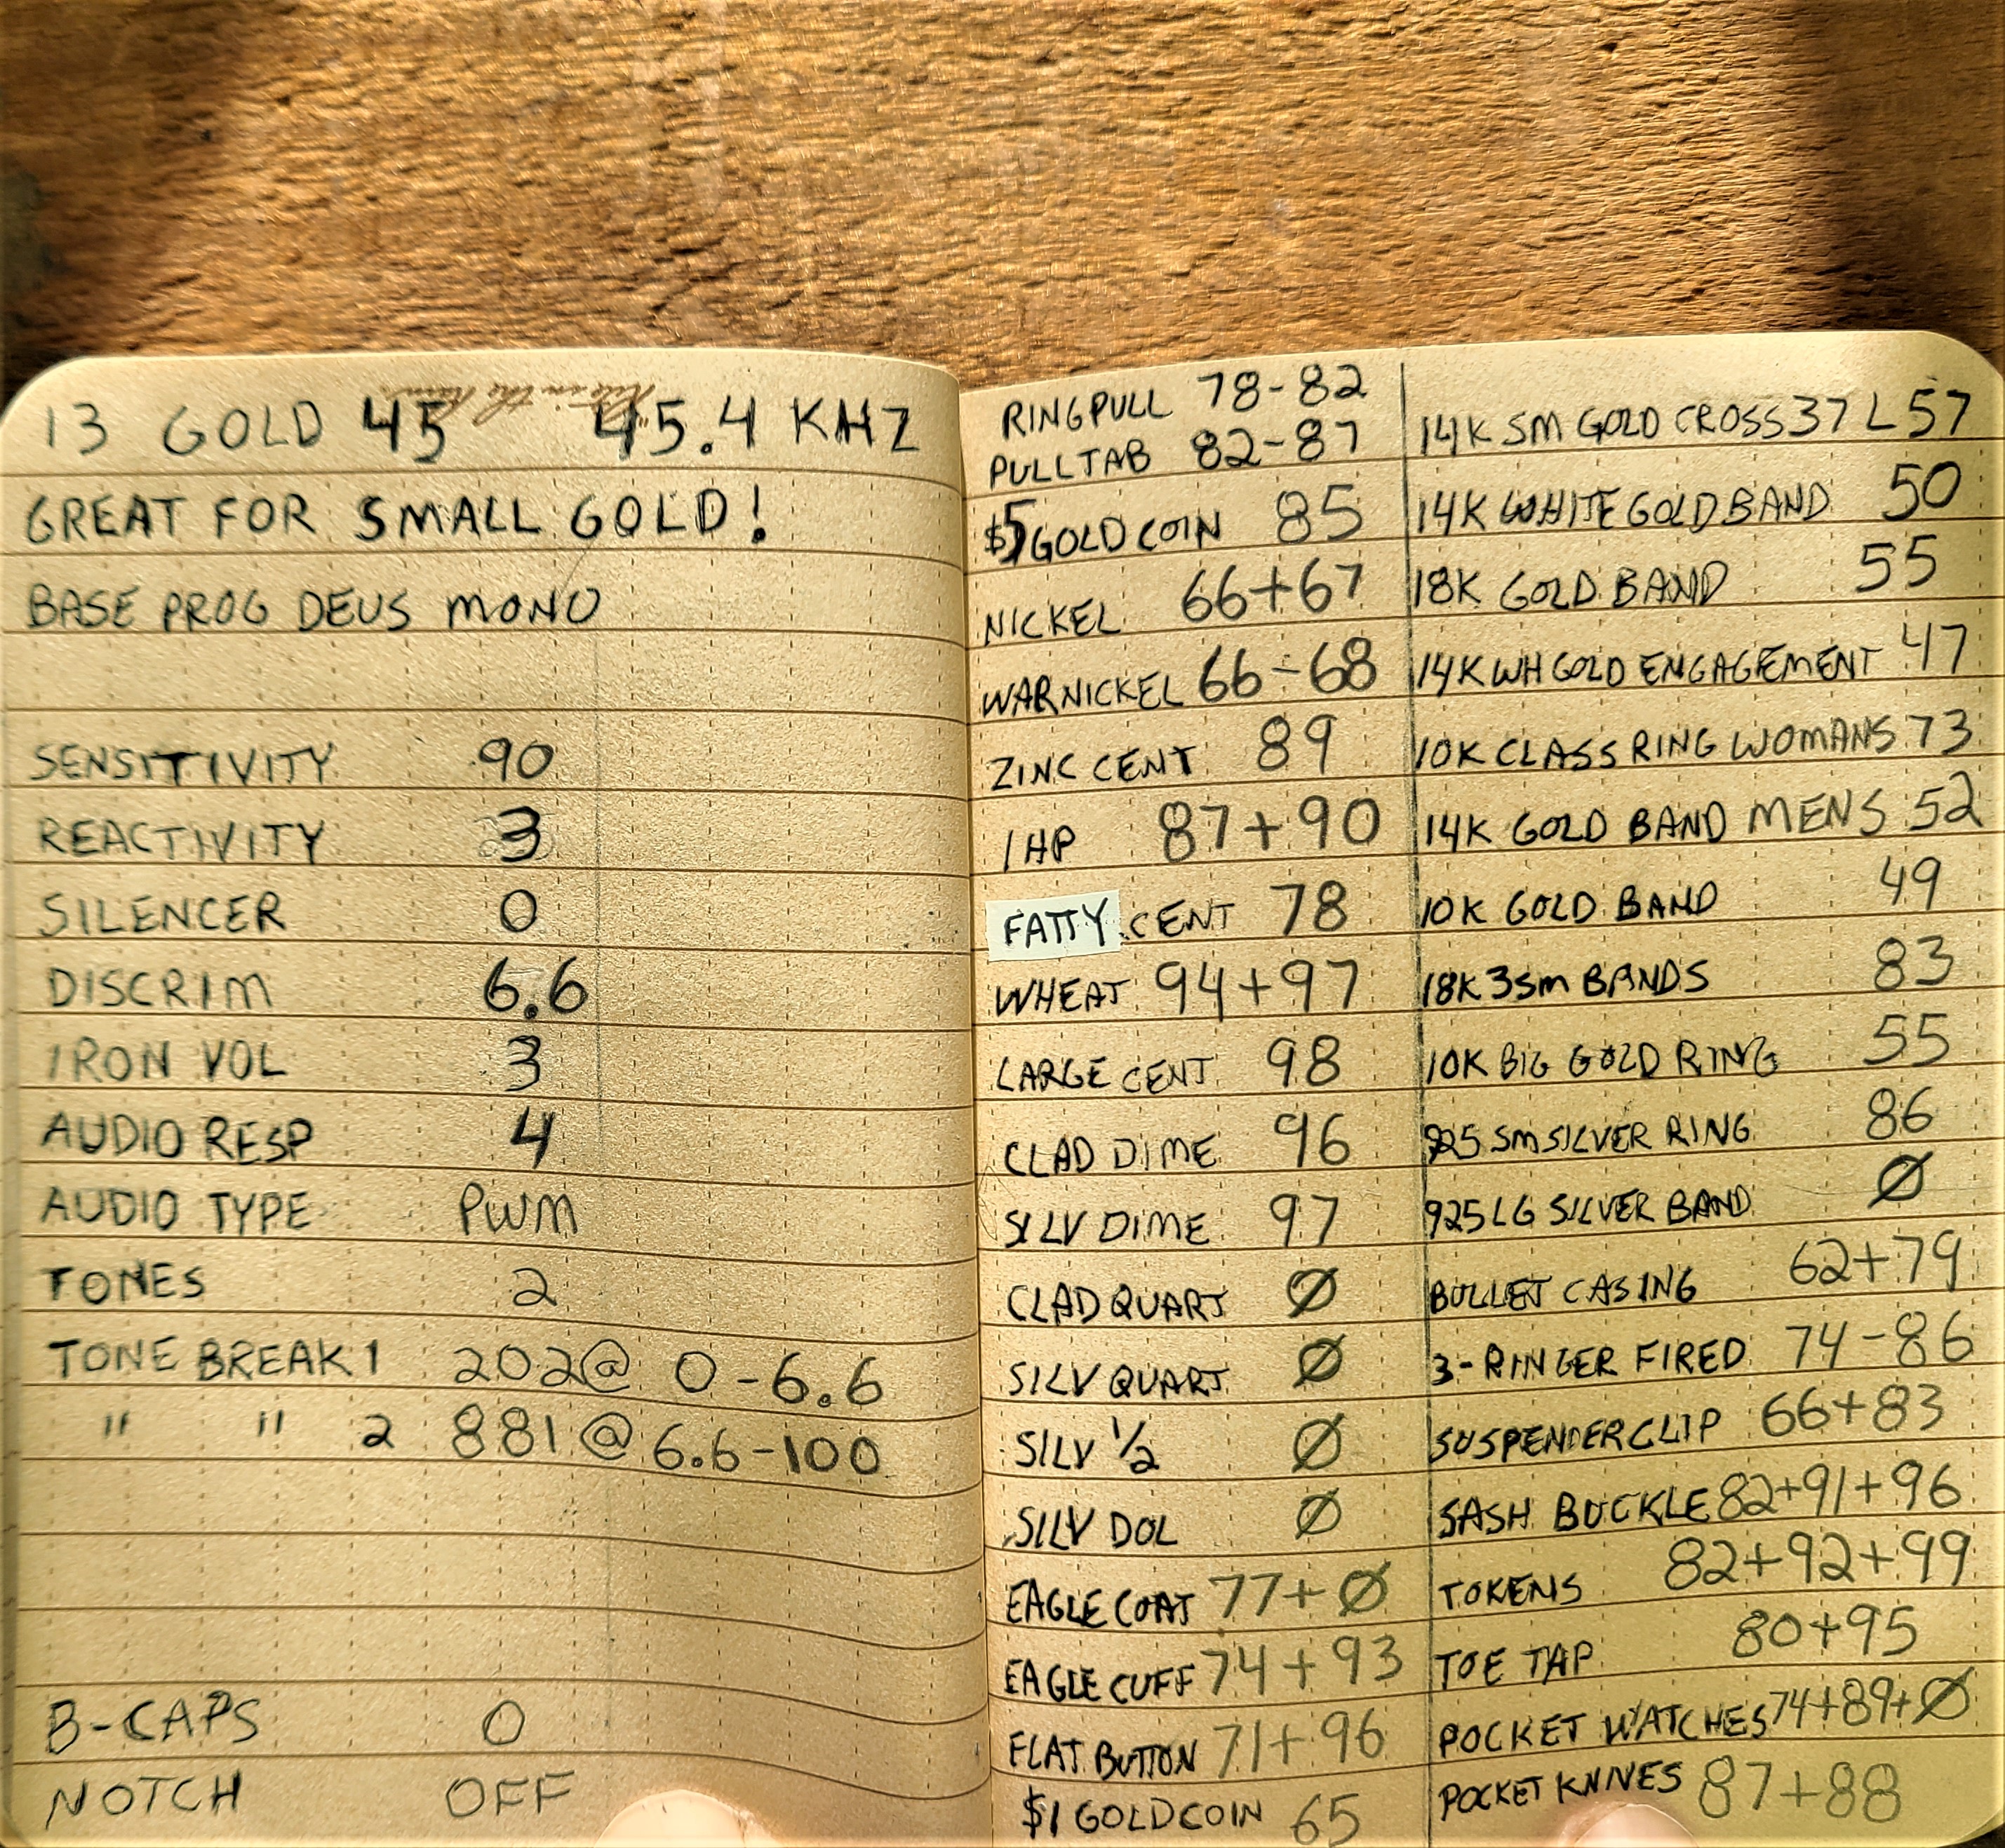 13 GOLD 45 45.4 KHZ
GREAT FOR SMALL GOLD!
BASE PROG DEUS MONO
SENSITIVITY 90
REACTIVITY 3
SILENCER 0
DISCRIM 6.6
IRON VOL 3
AUDIO RESP 4
AUDIO TYPE PWM
TONES 2
TONE BREAK 1 202@ 0-6.6
" " 2 881@ 6.6-100
B-CAPS 0
NOTCH OFF
RINGPULL 78-82
PULLTAB 82-87
$5 GOLD COIN 85
NICKEL 66+67
WARNICKEL 66-68
ZINC CENT 89
IHP 87+90
FATTY CENT 78
WHEAT 94+97
LARGE CENT 98
CLAD DIME 96
SILV DIME 97
CLAD QUART Ø
SILV QUART Ø
SILV 1/2 Ø
SILV DOL Ø
EAGLE COAT 77+Ø
EAGLE CUFF 74+93
FLAT BUTTON 71+96
$1 GOLD COIN 65
14K SM GOLD CROSS 37 L 57
14K WHITE GOLD BAND 50
18K GOLD BAND 55
14K WH GOLD ENGAGEMENT 47
10K CLASS RING WOMANS 73
14K GOLD BAND MENS 52
10K GOLD BAND 49
18K 3 SM BANDS 83
10K BIG GOLD RING 55
925 SM SILVER RING 86
925 LG SILVER BAND Ø
BULLET CASING 62+79
3-RINGER FIRED 74-86
SUSPENDER CLIP 66+83
SASH BUCKLE 82+91+96
TOKENS 82+92+99
TOE TAP 80+95
POCKET WATCHES 74+89+Ø
POCKET KNIVES 87+88